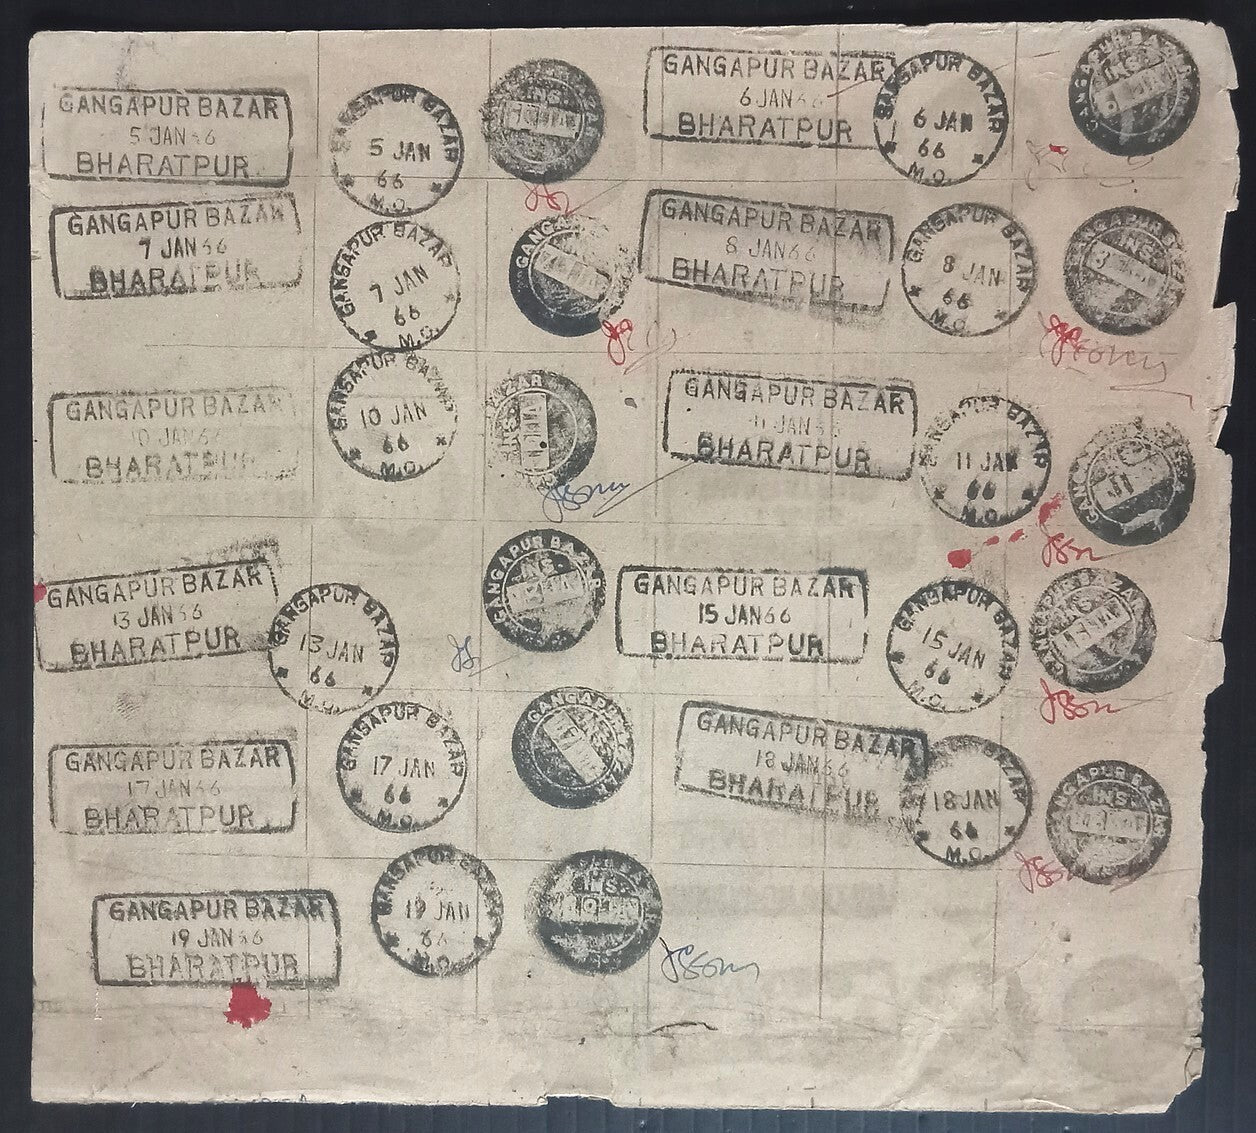 GANGAPUR BAZAR
5 JAN 66
BHARATPUR
GANGAPUR BAZAR
5 JAN
66
M.O.
INS.
GANGAPUR BAZAR
6 JAN 66
BHARATPUR
GANGAPUR BAZAR
6 JAN
66
M.O.
GANGAPUR BAZAR
INS.
GANGAPUR BAZAR
7 JAN 66
BHARATPUR
GANGAPUR BAZAR
7 JAN
66
M.O.
GANGAPUR BAZAR
8 JAN 66
BHARATPUR
GANGAPUR BAZAR
8 JAN
66
M.O.
GANGAPUR BAZAR
INS.
GANGAPUR BAZAR
10 JAN 66
BHARATPUR
GANGAPUR BAZAR
10 JAN
66
M.O.
BAZAR
GANGAPUR BAZAR
11 JAN 66
BHARATPUR
GANGAPUR BAZAR
11 JAN
66
M.O.
GANGAPUR BAZAR
13 JAN 66
BHARATPUR
GANGAPUR BAZAR
13 JAN
66
M.O.
GANGAPUR BAZAR
INS.
GANGAPUR BAZAR
15 JAN 66
BHARATPUR
GANGAPUR BAZAR
15 JAN
66
M.O.
GANGAPUR BAZAR
INS.
GANGAPUR BAZAR
17 JAN 66
BHARATPUR
GANGAPUR BAZAR
17 JAN
66
M.O.
GANGAPUR BAZAR
INS.
GANGAPUR BAZAR
18 JAN 66
BHARATPUR
BAZAR
18 JAN
66
M.O.
GANGAPUR BAZAR
INS.
GANGAPUR BAZAR
19 JAN 66
BHARATPUR
GANGAPUR BAZAR
19 JAN
66
M.O.
INS.